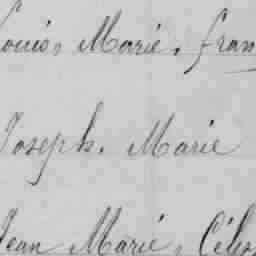 Louis, Marie, fran
Joseph. Marie
Jean Marie, Céles